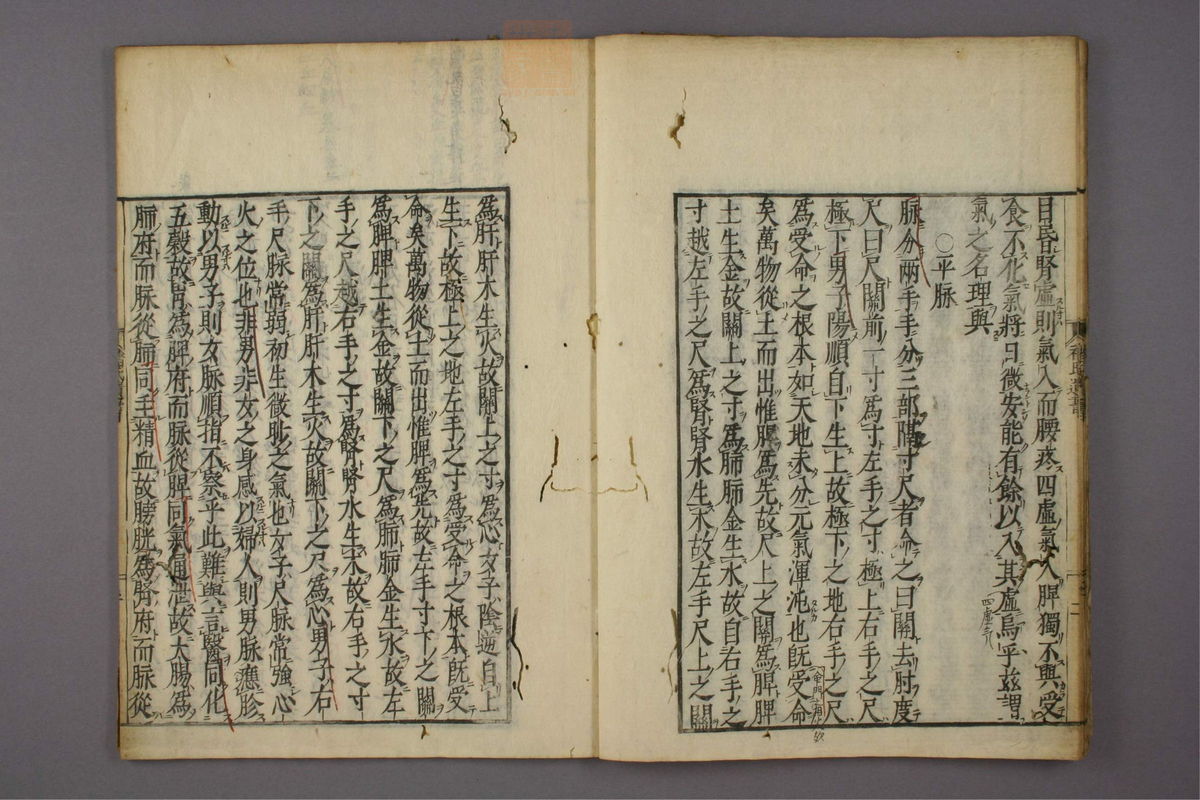 目昏腎虛則氣入而腰疼四虛氣入脾獨不與受
食不化氣將日微安能有餘以入其虛烏乎茲謂
氣之名理與
○平脉
脉分兩手手分三部隔寸尺者命之曰關去肘度
尺曰尺關前一寸為寸左手之寸極上右手之尺
極下男子陽順自下生上故極下之地右手之尺
為受命之根本如天地未分元氣渾沌也既受命
矣萬物從土而出惟脾為先故尺上之關為脾脾
土生金故關上之寸為肺肺金生水故自右手之
寸越左手之尺為腎腎水生木故左手尺上之關
為肝肝木生火故關上之寸為心女子陰逆自上
生下故極上之地左手之寸為受命之根本既受
命矣萬物從土而出惟脾為先故左手寸下之關
為脾脾土生金故關下之尺為肺肺金生水故左
手之尺越右手之寸為腎腎水生木故右手之寸
下之關為肝肝木生火故關下之尺為心男子右
手尺脉常弱初生微眇之氣也女子尺脉常強心
火之位也非男非女之身感以婦人則男脉應胗
動以男子則女脉順指不察乎此難與言醫同化
五穀故胃為脾府而脉從脾同氣通泄故大腸為
肺府而脉從肺同主精血故膀胱為腎府而脉從